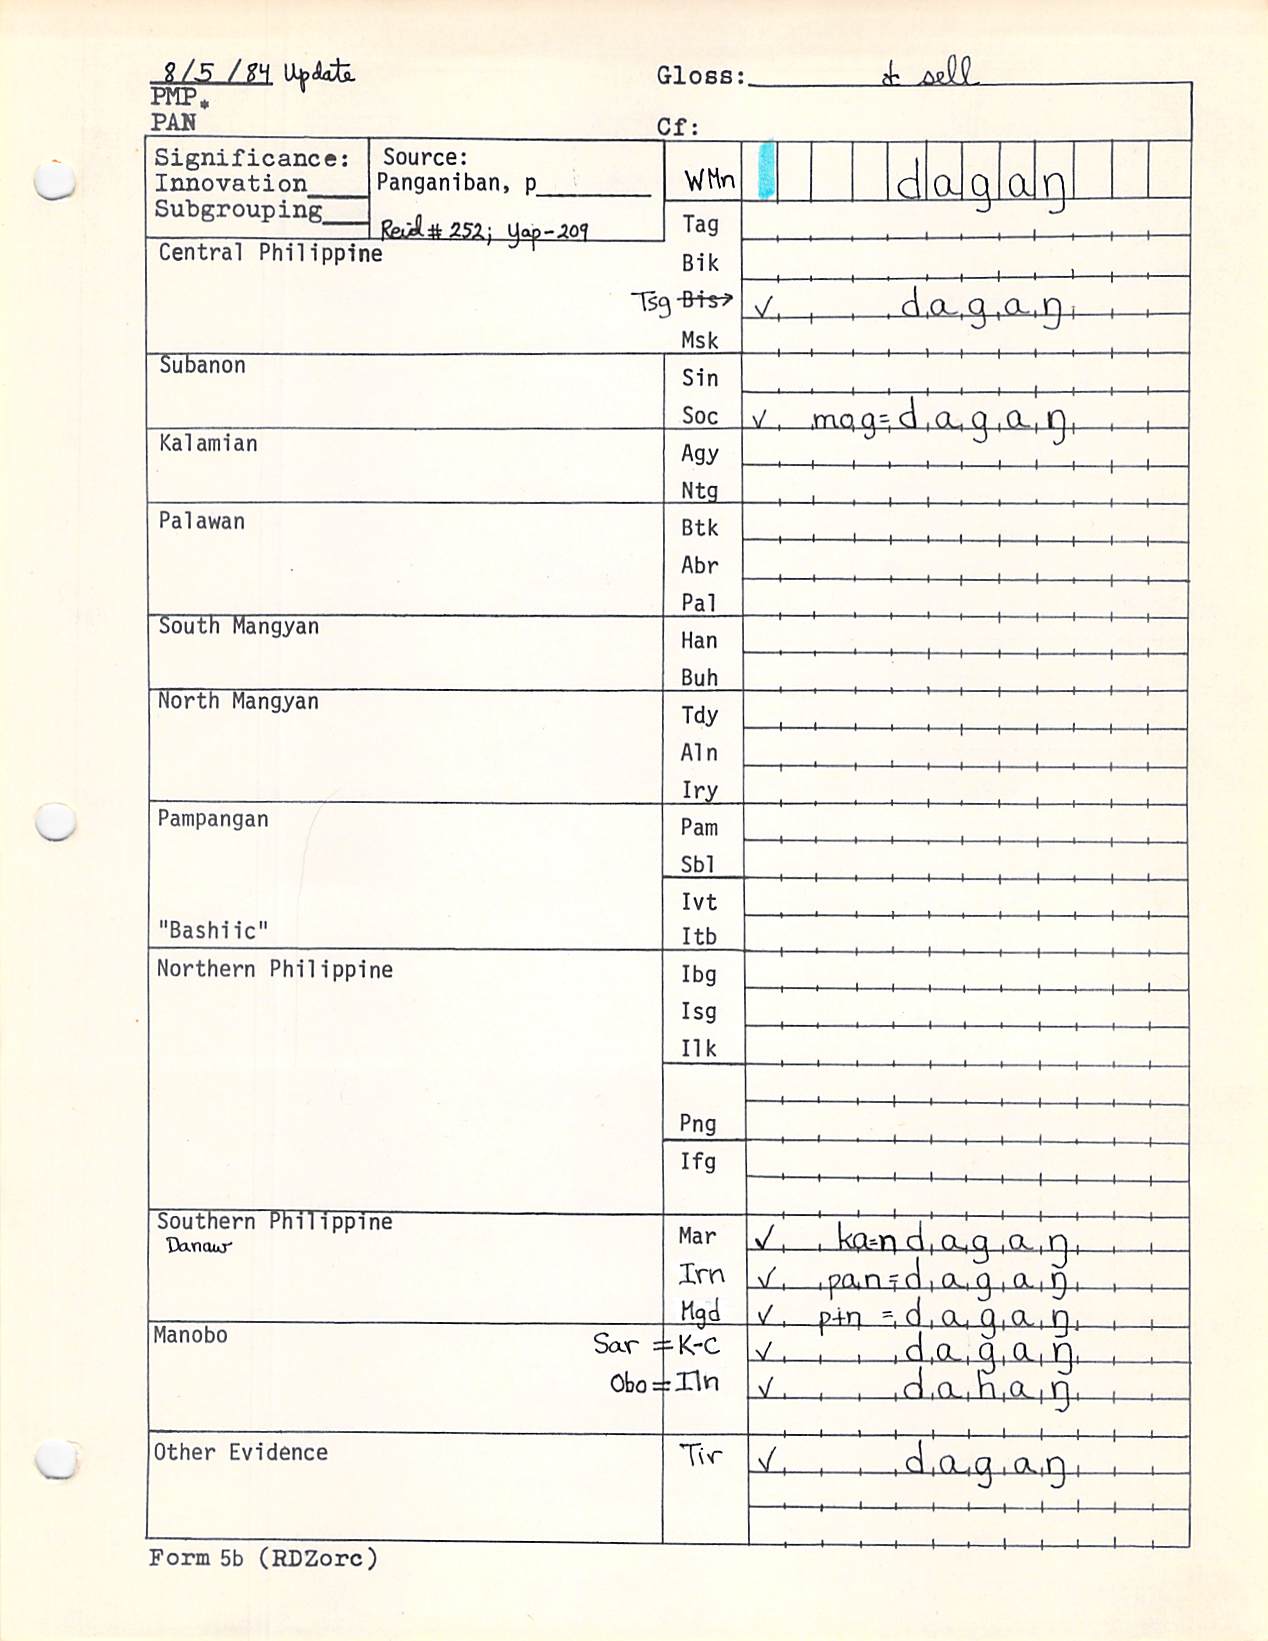 8/5/84 Update Gloss: to sell
PMP *
PAN Cf:
Significance: Source: WMn dagaŋ
Innovation Panganiban, p
Subgrouping Reid # 252; Yap-209 Tag
Central Philippine Bik
Tsg Bis→ ✓ dagaŋ
Msk
Subanon Sin
Soc ✓ mag=dagaŋ
Kalamian Agy
Ntg
Palawan Btk
Abr
Pal
South Mangyan Han
Buh
North Mangyan Tdy
Aln
Iry
Pampangan Pam
Sbl
Ivt
"Bashiic" Itb
Northern Philippine Ibg
Isg
Ilk
Png
Ifg
Southern Philippine Mar ✓ ka=ndagaŋ
Danaw
Irn ✓ pan=dagaŋ
Mgd ✓ pɨn=dagaŋ
Manobo Sar = K-C ✓ dagaŋ
Obo = Iln ✓ dahaŋ
Other Evidence Tir ✓ dagaŋ
Form 5b (RDZorc)